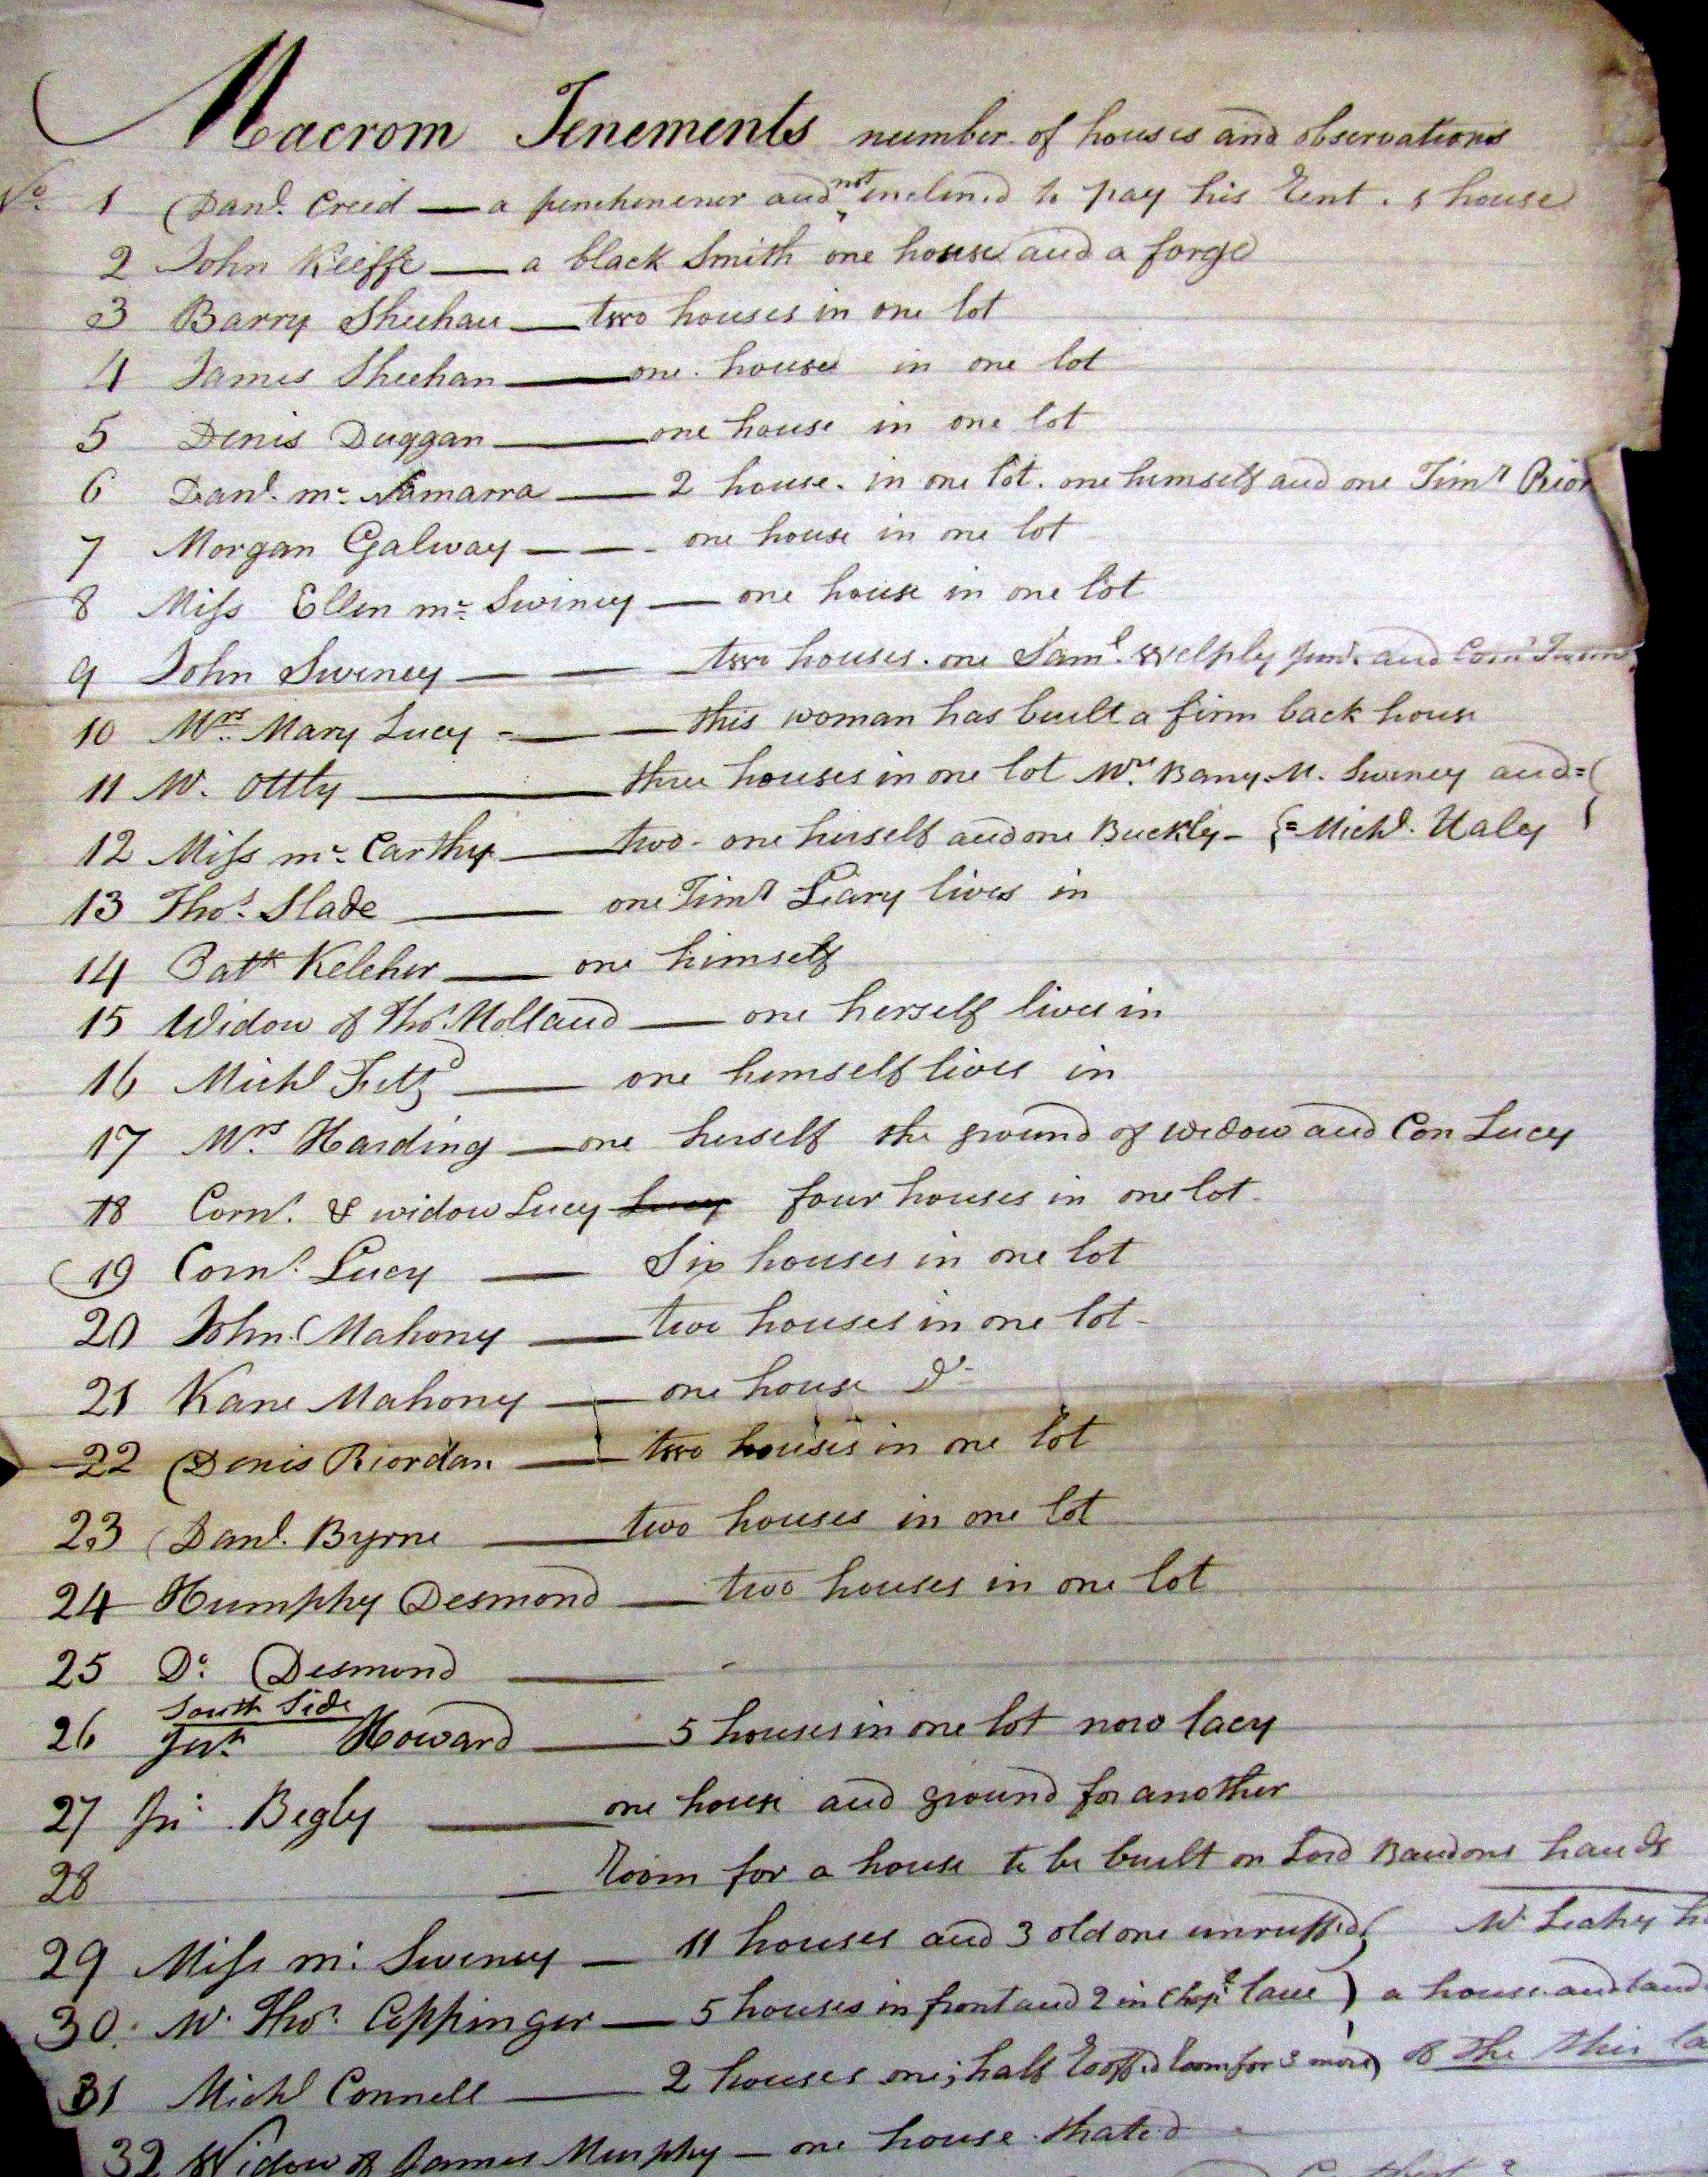 Macrom Tenements number of houses and observations
No. 1 Danl. Creed — a penchenener and not inclined to pay his Rent. 1 house
2 John Keeffe — a black Smith one house and a forge
3 Barry Sheehan — two houses in one lot
4 James Sheehan — one house in one lot
5 Denis Duggan — one house in one lot
6 Danl. mc. Namarra — 2 house. in one lot. one himself and one Timt Rior
7 Morgan Galway — — - one house in one lot
8 Miss Ellen mc. Swiney — one house in one lot
9 John Swiney — — two houses. one Saml. Welply Junr. and Corn
10 Mrs. Mary Lucy - — — this woman has built a firm back house
11 Mr. Ottly — three houses in one lot Wm. Barry. M. Swiney and =
12 Miss mc. Carthy — two - one herself and one Buckly - { = Michl. Haley
13 Thos. Slade — one Timt Leary lives in
14 Patk Keleher — one himself
15 Widow of Thos. Holland — one herself lives in
16 Michl Fitzd — one himself lives in
17 Mrs Harding — one herself the ground of widow and Con Lucy
18 Cornl. & widow Lucy Lucy four houses in one lot.
19 Cornl. Lucy — Six houses in one lot
20 John Mahony — two houses in one lot -
21 Kane Mahony — one house Do
22 Denis Riordan — two houses in one lot
23 Danl. Byrne — two houses in one lot
24 Humphy Desmond — two houses in one lot
25 Do. Desmond — -
South Side
26 Howard — 5 houses in one lot now lacy
27 Jn. Begly — one house and ground for another
28 — Room for a house to be built on Lord Bandons hands
29 Miss mc. Swiney — 11 houses and 3 old one unruffed Mr. Leahy h
30. Mr. Thos. Coppinger — 5 houses in front and 2 in Chapl. lane } a house and land
31 Michl Connell — 2 houses one; half Rooffed Room for 3 more of the this la
32 Widow of James Murphy — one house thated